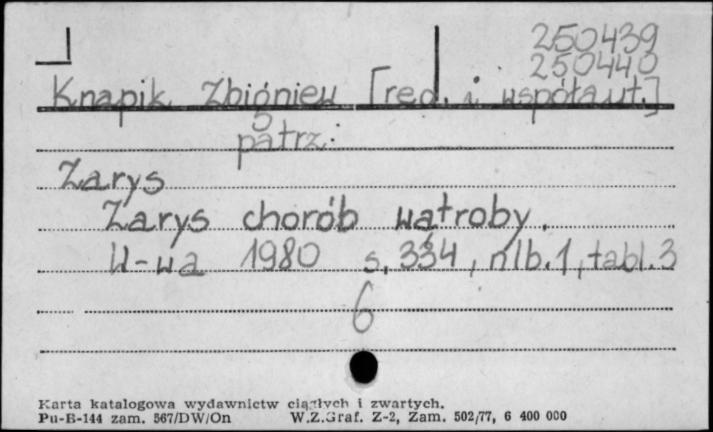 250439
250440
Knapik Zbigniew [red. i współaut.]
patrz:
Zarys
Zarys chorób wątroby.
W-wa 1980 s. 334, nlb. 1, tabl. 3
6
Karta katalogowa wydawnictw ciągłych i zwartych.
Pu-B-144 zam. 567/DW/On W.Z.Graf. Z-2, Zam. 502/77, 6 400 000